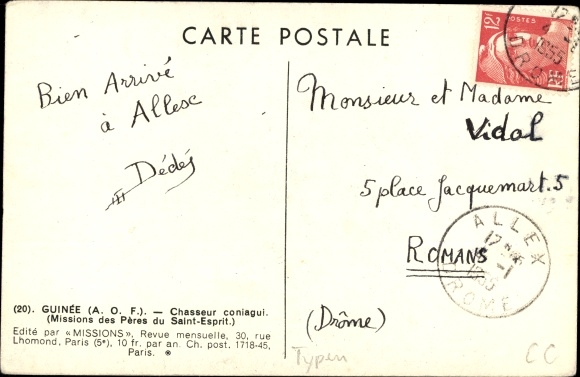 CARTE POSTALE
12F
POSTES
Bien Arrivé
à Allesc
Dédés
Monsieur et Madame
Vidal
5 place Jacquemart.5
ROMANS
(Drôme)
ALLEX
DROME
(20). GUINÉE (A. O. F.). — Chasseur coniagui.
(Missions des Pères du Saint-Esprit.)
Edité par « MISSIONS », Revue mensuelle, 30, rue
Lhomond, Paris (5ᵉ), 10 fr. par an. Ch. post. 1718-45,
Paris.
Typen
CC